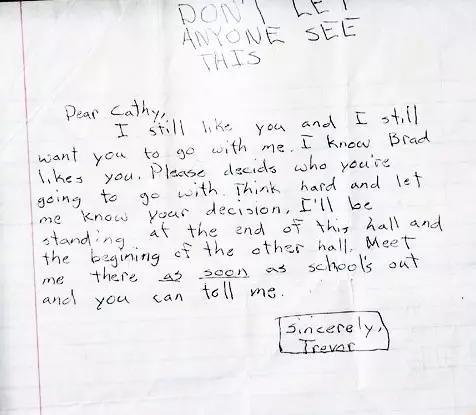 DON'T LET
ANYONE SEE
THIS
Dear Cathy,
I still like you and I still
want you to go with me. I know Brad
likes you. Please decide who you're
going to go with. Think hard and let
me know your decision. I'll be
standing at the end of this hall and
the begining of the other hall. Meet
me there as soon as school's out
and you can tell me.
Sincerely,
Trevor